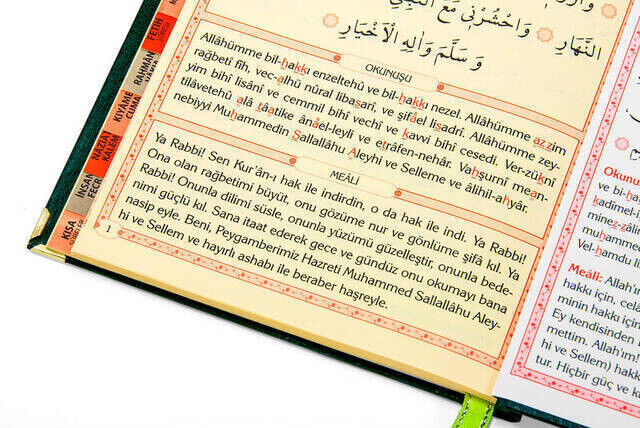 النَّهَارِ وَاحْشُرْنِي مَعَ النَّبِيِّ
وَ سَلَّمَ وَاٰلِهِ الْاَخْيَارِ
OKUNUŞU
Allâhümme bil-hakkı enzeltehû ve bil-hakkı nezel. Allâhümme azzim
rağbetî fîh, vec-alhü nûral libasarî, ve şifâel lisadrî. Allâhümme zey-
yim bihî lisânî ve cemmil bihî vechî ve kavvi bihî cesedî. Ver-züknî
tilâvetehû alâ tââtike ânâel-leyli ve etrâfen-nehâr. Vahşurnî mean-
nebiyyi Muhammedin Sallallâhu Aleyhi ve Selleme ve âlihil-ahyâr.
MEÂLİ
Ya Rabbi! Sen Kur'ân-ı hak ile indirdin, o da hak ile indi. Ya Rabbi!
Ona olan rağbetimi büyüt, onu gözüme nur ve gönlüme şifâ kıl. Ya
Rabbi! Onunla dilimi süsle, onunla yüzümü güzelleştir, onunla bede-
nimi güçlü kıl. Sana itaat ederek gece ve gündüz onu okumayı bana
nasip eyle. Beni, Peygamberimiz Hazreti Muhammed Sallallâhu Aley-
hi ve Sellem ve hayırlı ashabı ile beraber haşreyle.
1
FETİH
RAHMÂN
KIYÂME
CUMA
NÂZİÂT
KALEM
İNSAN
FECR
KISA
Okunu
ve bi-h
kadîmel
minez-z
muham
Vel-hamdu l
Meâli: Allah'ı
hakkı için, cel
minin hakkı iç
Ey kendisinden
mettim. Allah'ım!
hi ve Sellem) hakk
tur. Hiçbir güç ve k